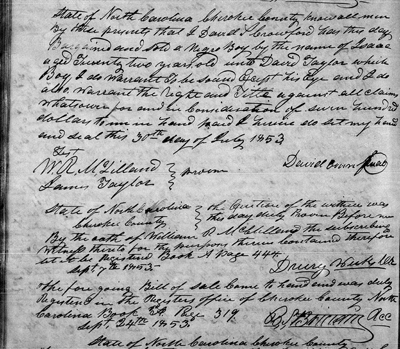 State of North Carolina Cherokee County Know all men
By these presents that I David Crawford has this day
Bargained and sold a Negro Boy by the name of Isaac
aged Twenty two years old unto David Taylor which
Boy I do warrant to be sound Except his Eye and I do
also warrant the right and Title against all claims
whatsover for and in Consideration of seven hundred
dollars to me in hand paid I hereunto set my hand
and seal this 30th day of July 1853
Test
David
W. R. McLilland
James Taylor
proven
State of North Carolina
Cherokee County
the Execution of the within was
this day duly Proven Before me
By the oath of William R McLilland the subscribing
witness thereto for the purposes therein contained therefore
let it be Registered Book A Page 444
Sept 7th 1853
Drury Weeks Clk
the foregoing Bill of sale Came to hand and was duly
Registered in the Registers office of Cherokee County North
Carolina Book Page 319
Sept. 24th 1853
State of North Carolina Cherokee County